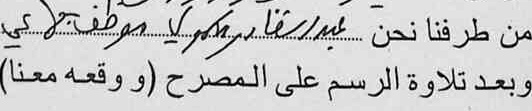 من طرفنا نحن عبد القادر موظف جماعي
وبعد تلاوة الرسم على المصرح (و وقعه معنا)